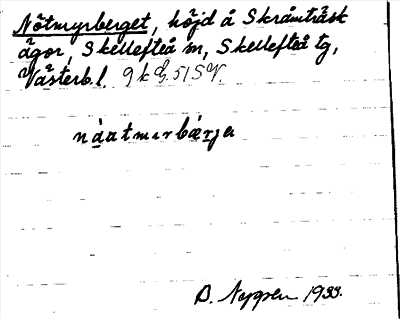 Nötmyrberget, höjd å Skråmträsk
ägor, Skellefteå sn, Skellefteå tg,
Västerb. l. 9k 51 SV
nåatmırbärja
1933.